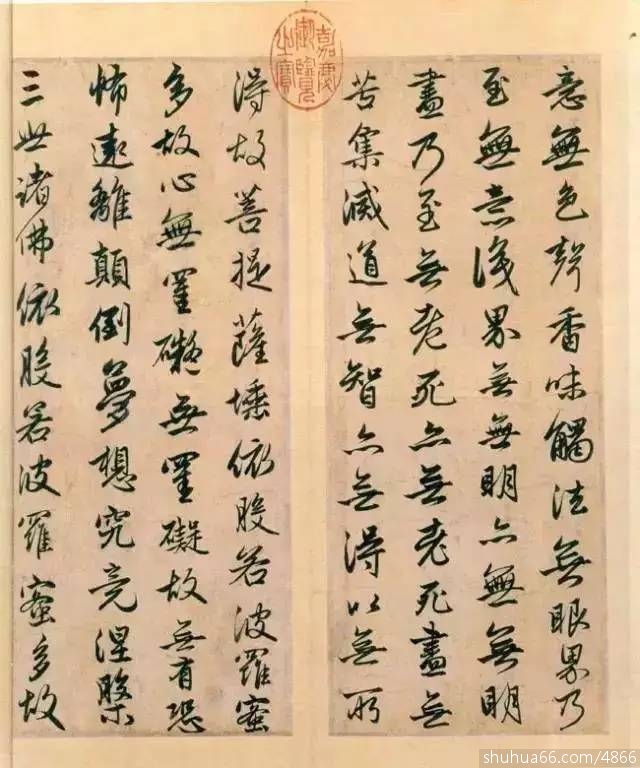 嘉慶御覽之寶
意無色聲香味觸法無眼界乃
至無意識界無無明亦無無明
盡乃至無老死亦無老死盡無
苦集滅道無智亦無得以無所
得故菩提薩埵依般若波羅蜜
多故心無罣礙無罣礙故無有恐
怖遠離顛倒夢想究竟涅槃
三世諸佛依般若波羅蜜多故
shuhua66.com/4866